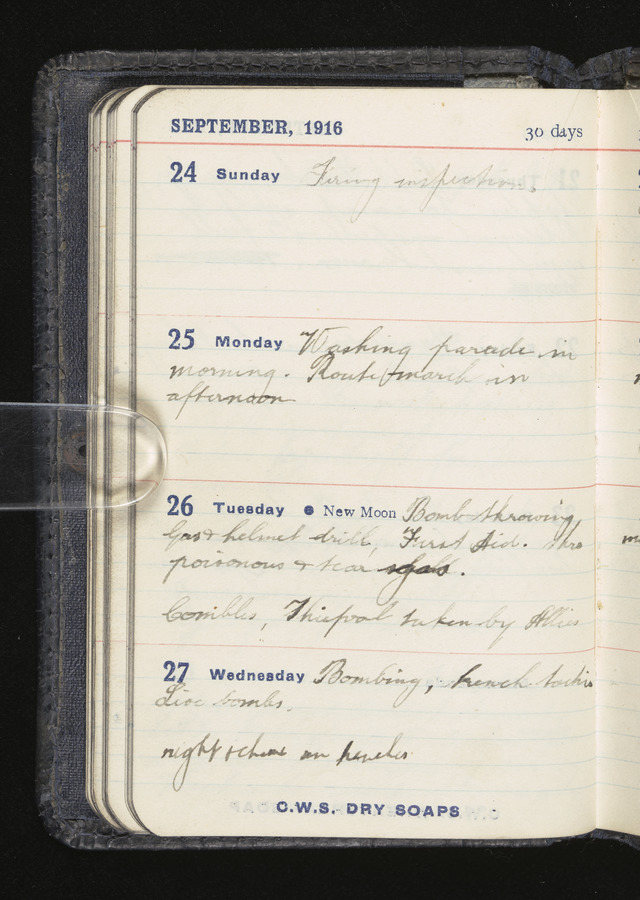 SEPTEMBER, 1916 30 days
24 Sunday Firing inspection.
25 Monday Washing parade in
morning. Route march in
afternoon
26 Tuesday New Moon Bomb throwing,
Gas helmet drill, First Aid. thro
poisonous & tear gas.
Combles, Thiepval taken by Allies
27 Wednesday Bombing, trench
Live bombs.
night in trenches
C.W.S. DRY SOAPS